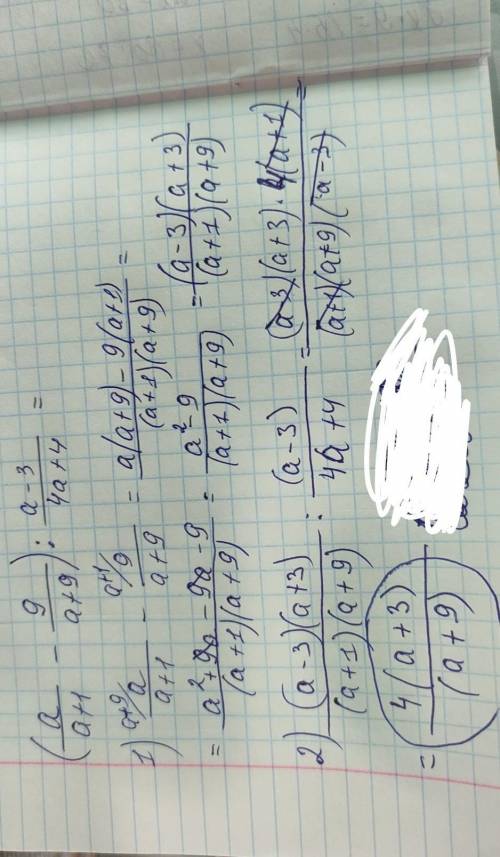 (a/(a+1) - 9/(a+9)) : (a-3)/(4a+4) =
1) a+9/ a/(a+1) - a+1/ 9/(a+9) = (a(a+9)-9(a+1))/((a+1)(a+9)) =
= (a²+9a-9a-9)/((a+1)(a+9)) = (a²-9)/((a+1)(a+9)) = ((a-3)(a+3))/((a+1)(a+9))
2) ((a-3)(a+3))/((a+1)(a+9)) : (a-3)/(4a+4) = ((a-3)(a+3)·4(a+1))/((a+1)(a+9)(a-3)) =
= (4(a+3))/((a+9))